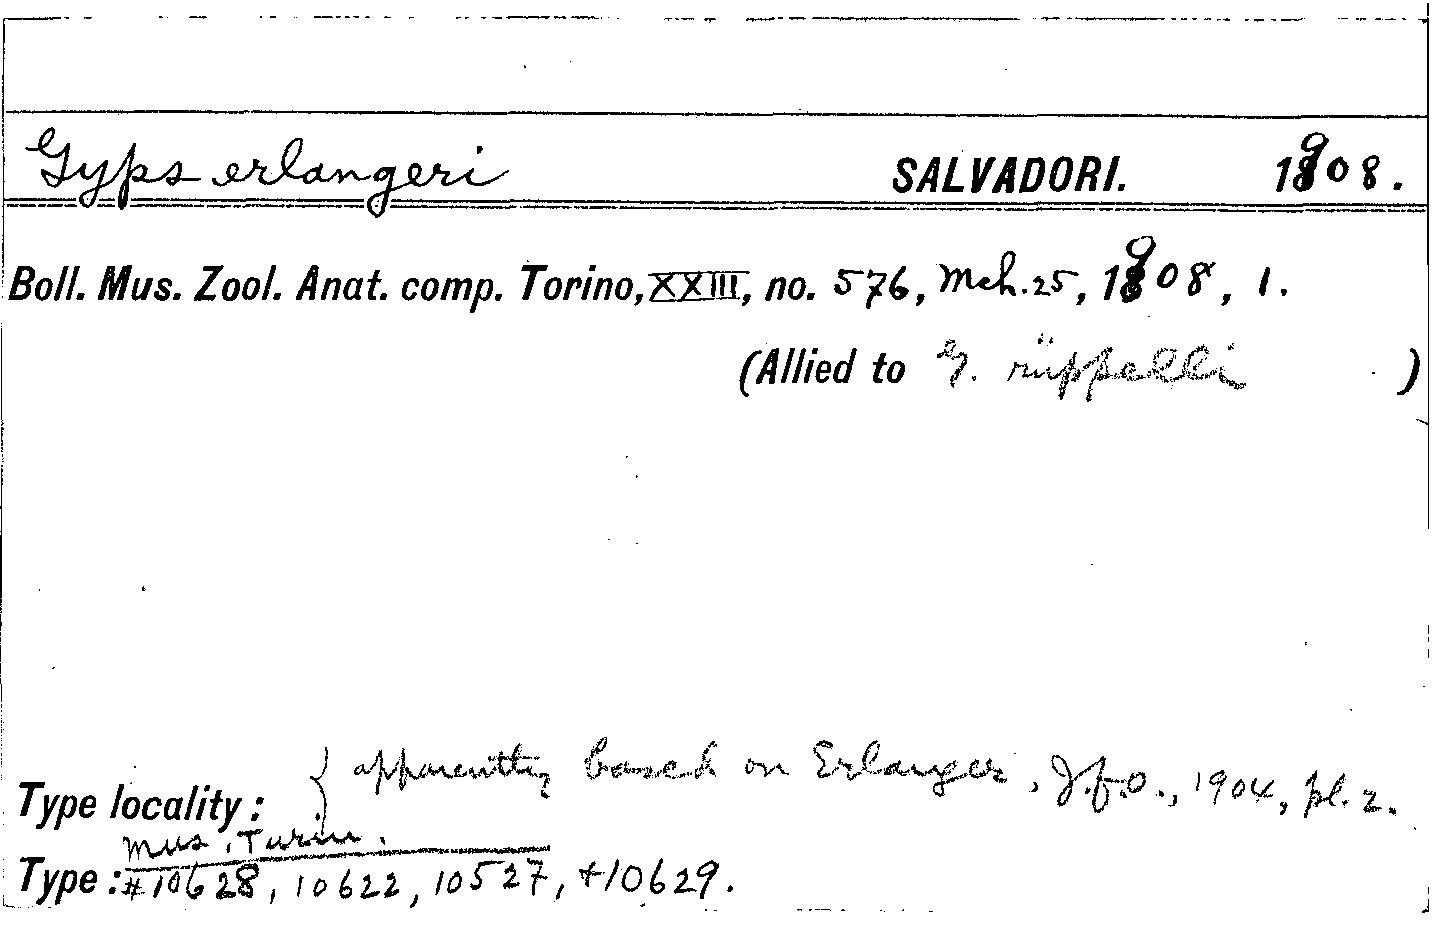 Gyps erlangeri SALVADORI. 1908.
Boll. Mus. Zool. Anat. comp. Torino, XXIII, no. 576, Mch. 25, 1908, 1.
(Allied to G. rüppelli )
{ apparently based on Erlanger, J.f.O., 1904, pl. 2.
Type locality:
Mus. Turin.
Type: #10628, 10622, 10527, +10629.